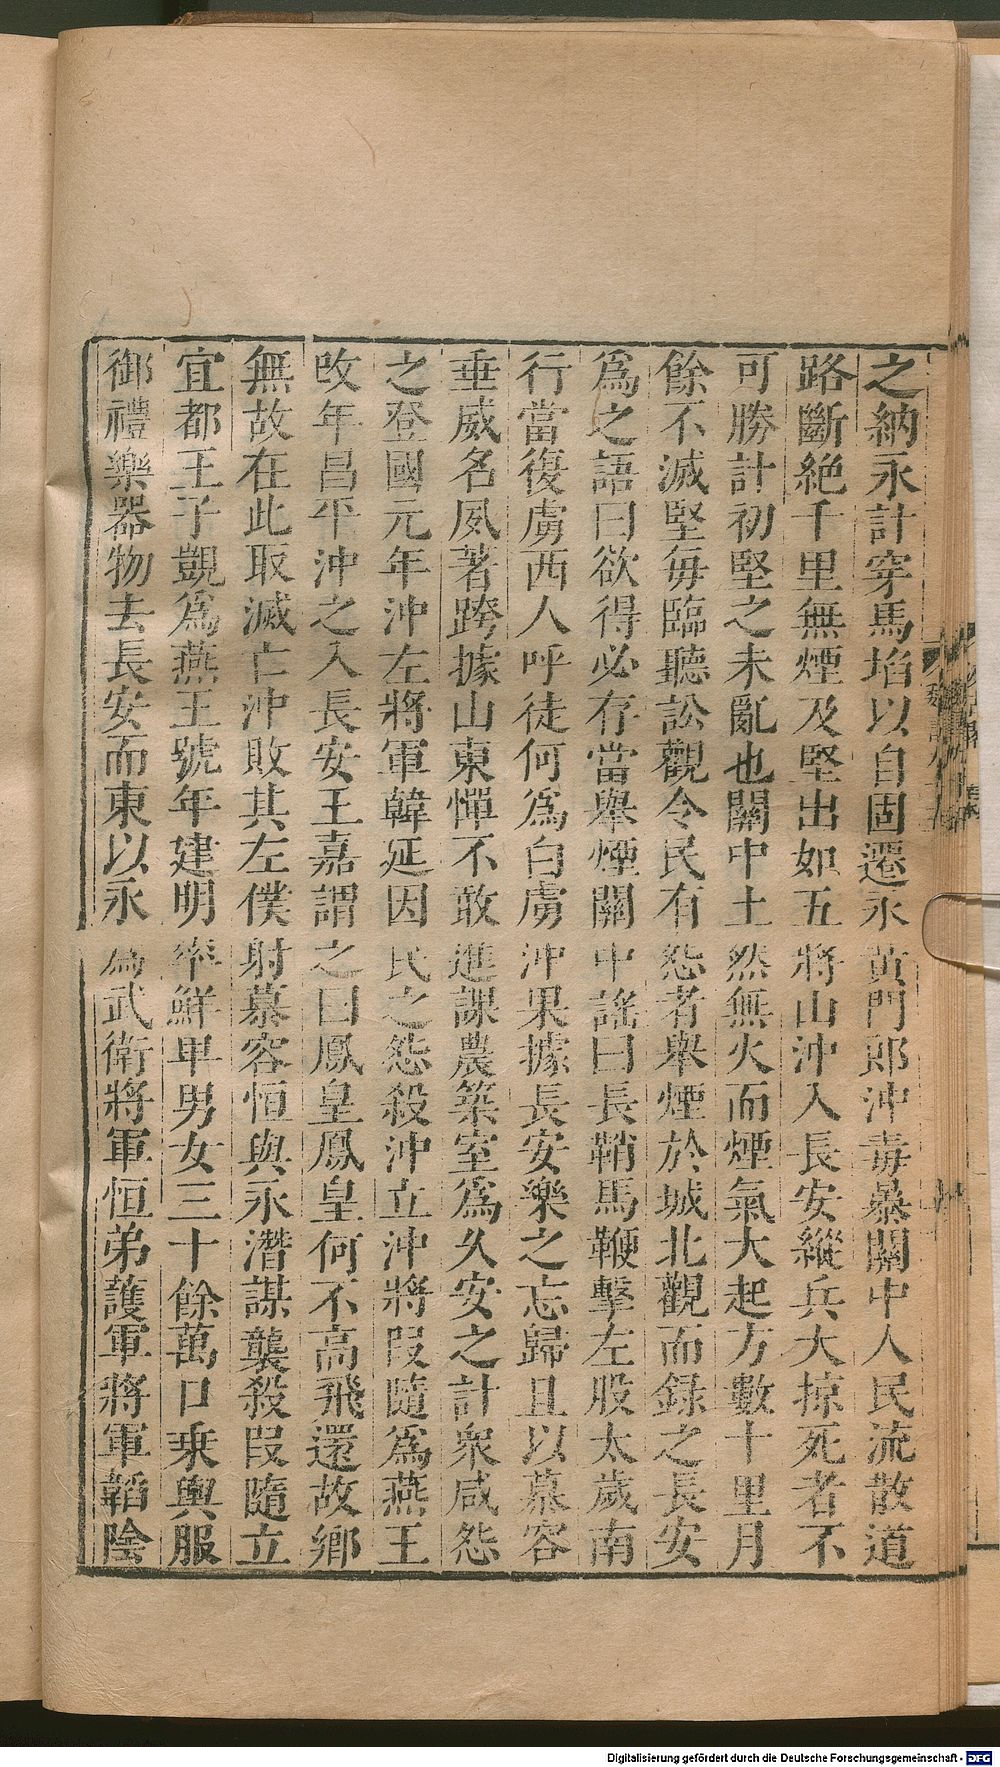 之納永計穿馬埳以自固遷永黃門郎沖毒暴關中人民流散道
路斷絕千里無煙及堅出如五將山沖入長安縱兵大掠死者不
可勝計初堅之未亂也關中土然無火而煙氣大起方數十里月
餘不滅堅每臨聽訟觀令民有怨者舉煙於城北觀而録之長安
爲之語曰欲得必存當舉煙關中謠曰長鞘馬鞭擊左股太歲南
行當復虜西人呼徒何爲白虜沖果據長安樂之忘歸且以慕容
垂威名夙著跨據山東憚不敢進課農築室爲久安之計衆咸怨
之登國元年沖左將軍韓延因民之怨殺沖立沖將段隨爲燕王
改年昌平沖之入長安王嘉謂之曰鳳皇鳳皇何不高飛還故鄉
無故在此取滅亡沖敗其左僕射慕容恒與永潛謀襲殺段隨立
宜都王子覬爲燕王號年建明率鮮卑男女三十餘萬口乗輿服
御禮樂器物去長安而東以永爲武衛將軍恒弟護軍將軍韜陰
Digitalisierung gefördert durch die Deutsche Forschungsgemeinschaft - DFG